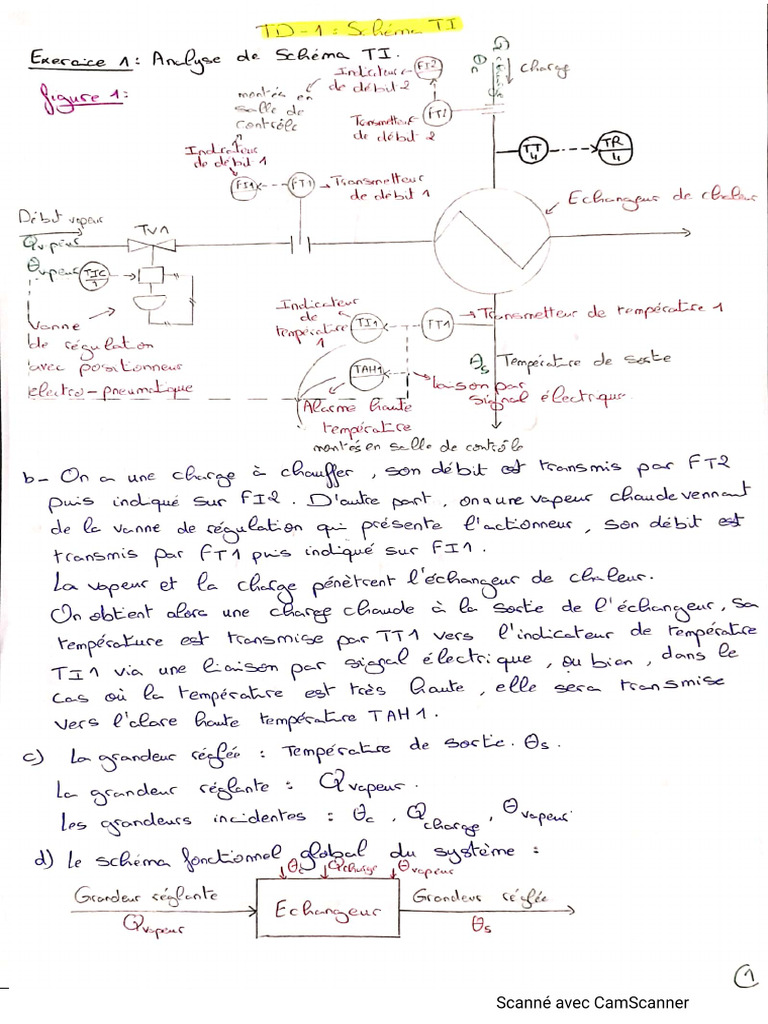 TD-1: Schéma TI
Exercice 1: Analyse de Schéma TI.
figure 1:
Indicateur
de débit 2
FI2
θc
charge
montés en
salle de
contrôle
Transmetteur
de débit 2
FT2
Indicateur
de débit 1
TT
4
TR
4
FI1
FT1
Transmetteur
de débit 1
Echangeur de chaleur
Débit vapeur
TV1
θvapeur
TIC
1
Vanne
de régulation
avec positionneur
electro-pneumatique
Indicateur
de
température
1
TI1
TT1
Transmetteur de température 1
TAH1
θs Température de sortie
liaison par
signal électrique
Alarme haute
température
montés en salle de contrôle
b- On a une charge à chauffer, son débit est transmis par FT2
puis indiqué sur FI2. D'autre part, on a une vapeur chaude vennant
de la vanne de régulation qui présente l'actionneur, son débit est
transmis par FT1 puis indiqué sur FI1.
La vapeur et la charge pénètrent l'échangeur de chaleur.
On obtient alors une charge chaude à la sortie de l'échangeur, sa
température est transmise par TT1 vers l'indicateur de température
TI1 via une liaison par signal électrique, ou bien, dans le
cas où la température est très haute, elle sera transmise
vers l'alare haute température TAH1.
c) La grandeur réglée : Température de sortie. θs.
La grandeur réglante : Qvapeur.
Les grandeurs incidentes : θc, Qcharge, θvapeur.
d) Le schéma fonctionnel global du système :
θc Qcharge θvapeur
Grandeur réglante
Qvapeur
Echangeur
Grandeur réglée
θs
1
Scanné avec CamScanner